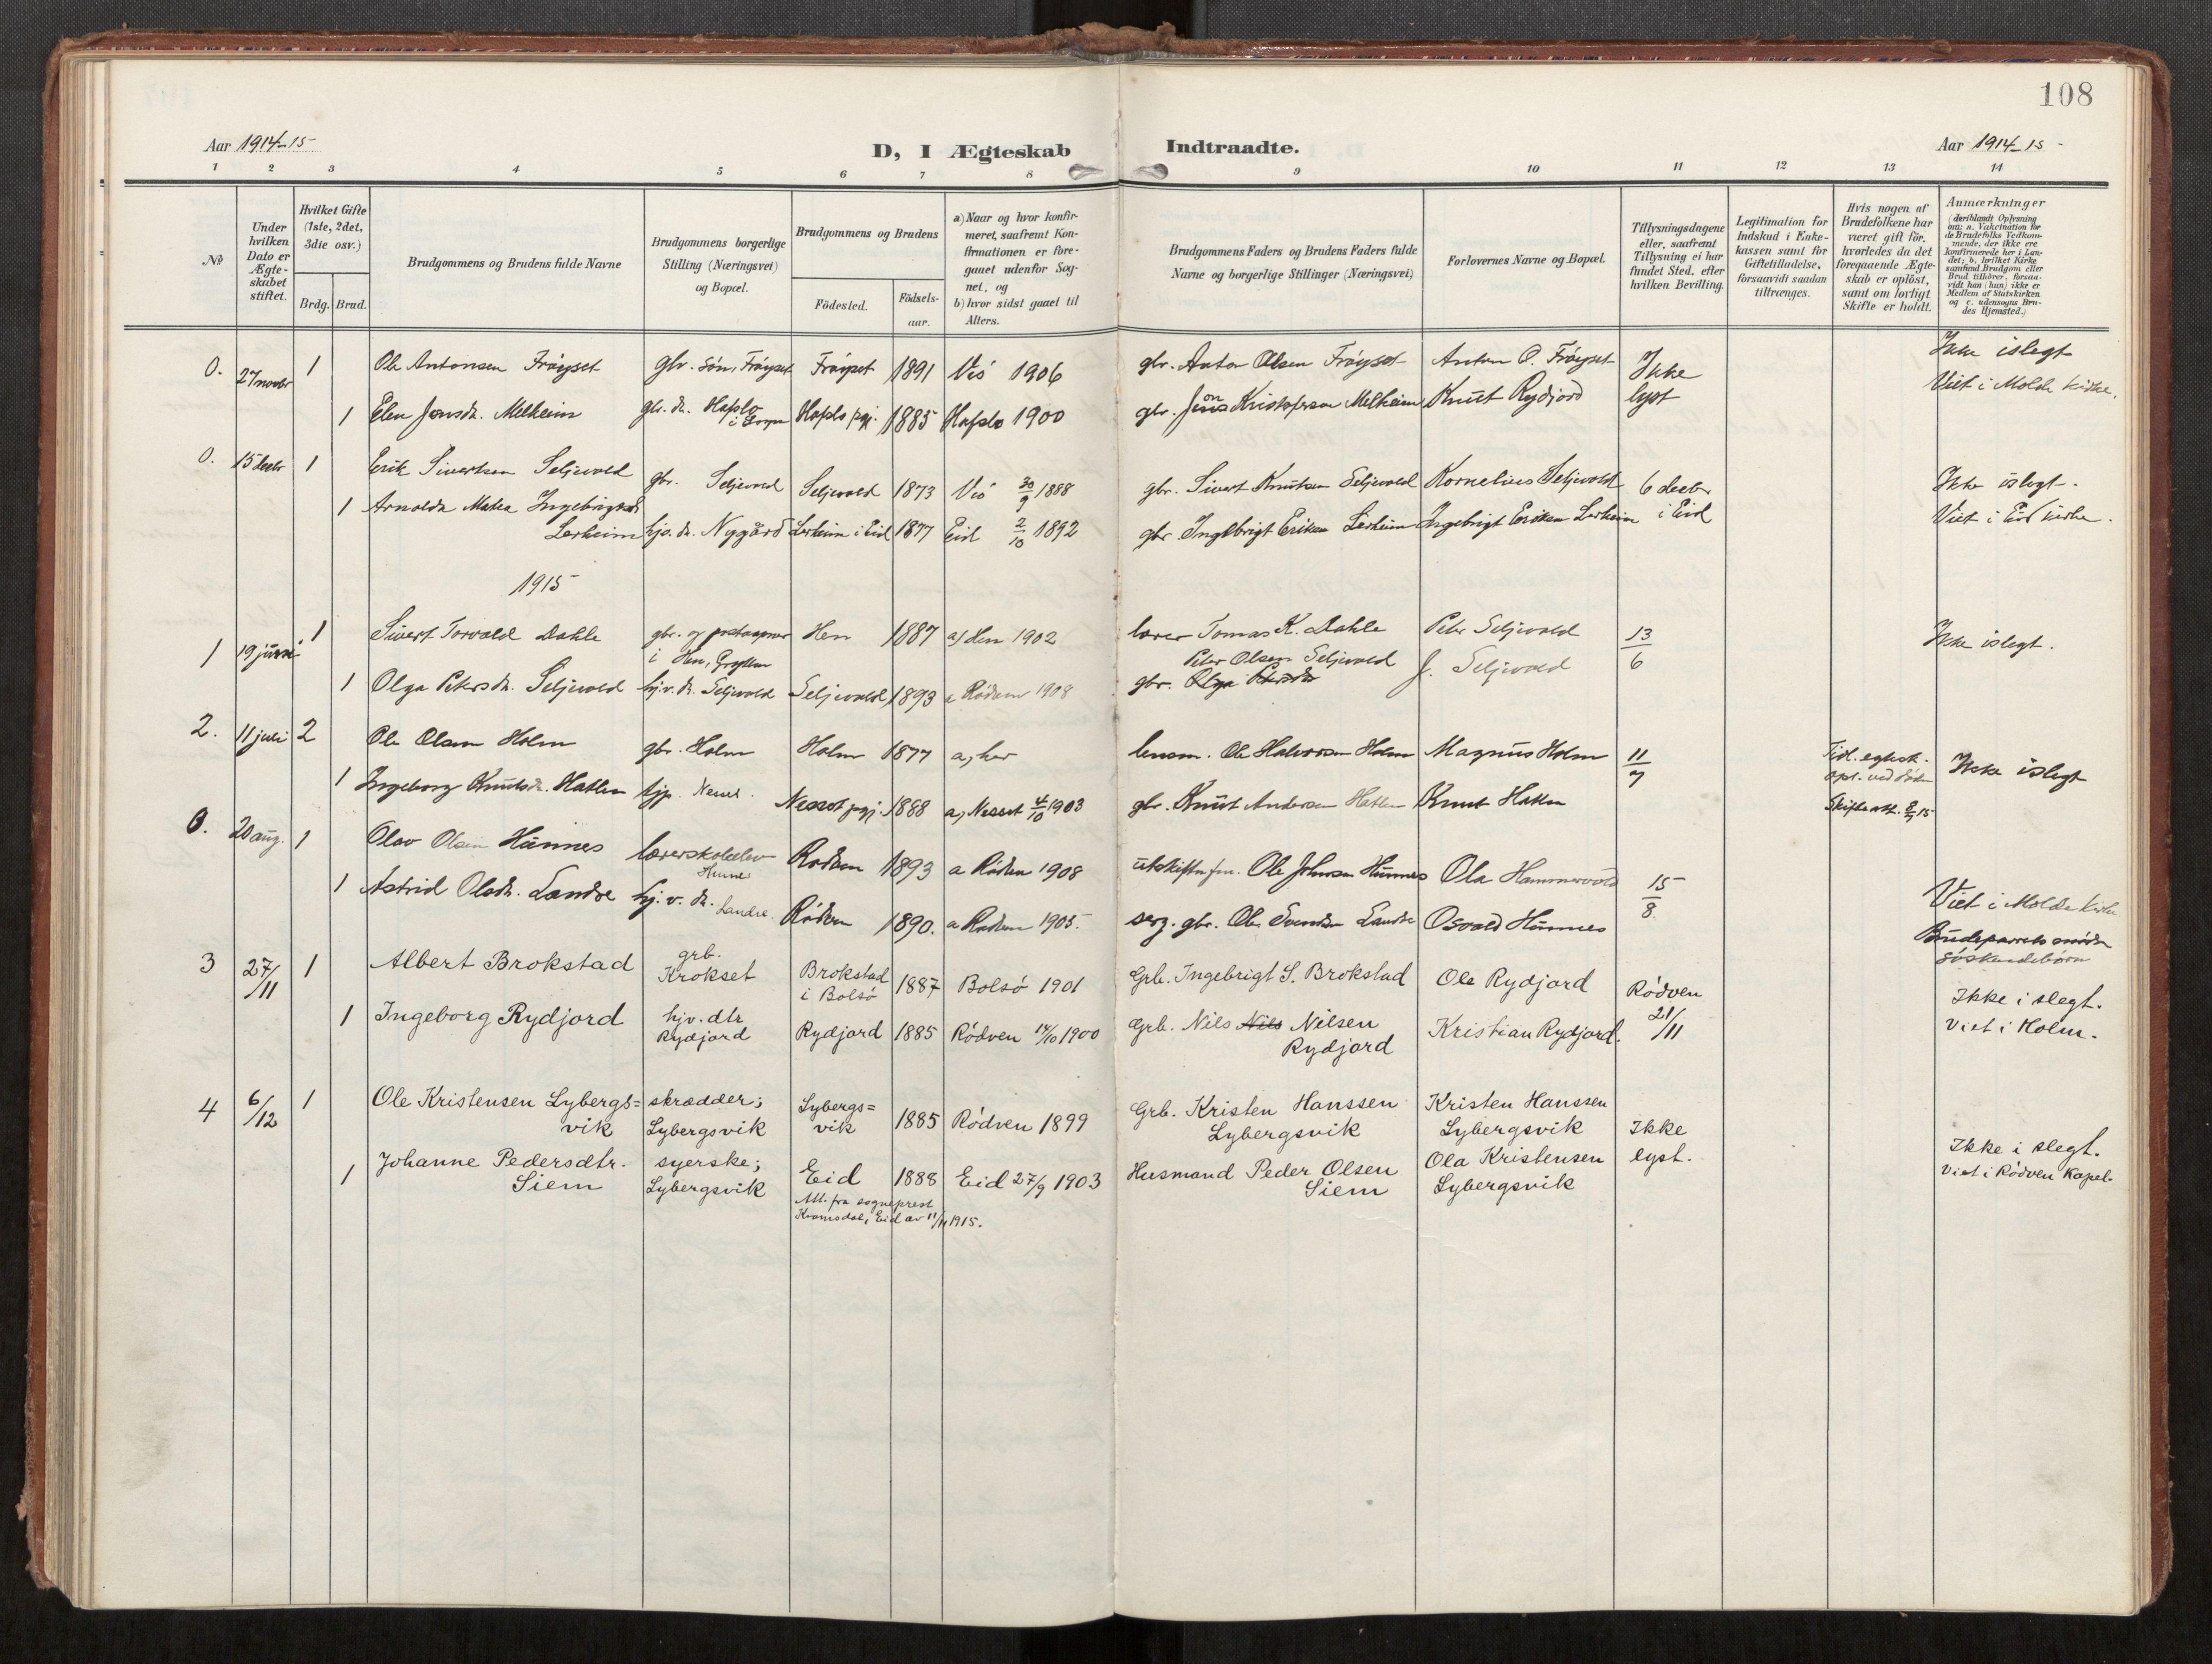 108
Aar 1914-15
D, I Ægteskab
Indtraadte.
Aar 1914-15-
1 2 3 4 5 6 7 8 9 10 11 12 13 14
No
Under hvilken Dato er Ægteskabet stiftet.
Hvilket Gifte (1ste, 2det, 3die osv.)
Brdg. Brud.
Brudgommens og Brudens fulde Navne
Brudgommens borgerlige Stilling (Næringsvei) og Bopæl.
Brudgommens og Brudens
Födested.
Födsels-aar.
a) Naar og hvor konfirmeret, saafremt Konfirmationen er foregaaet udenfor Sognet, og
b) hvor sidst gaaet til Alters.
Brudgommens Faders og Brudens Faders fulde Navne og borgerlige Stillinger (Næringsvei)
Forlovernes Navne og Bopæl.
Tillysningsdagene eller, saafremt Tillysning ei har fundet Sted, efter hvilken Bevilling.
Legitimation for Indskud i Enkekassen samt for Giftetilladelse, forsaavidt saadan tiltrænges.
Hvis nogen af Brudefolkene har været gift för, hvorledes da det foregaaende Ægteskab er oplöst, samt om lovligt Skifte er holdt.
Anmærkninger
(deriblandt Oplysning om: a. Vakcination for de Brudefolks Vedkommende, der ikke ere konfirmerede her i Landet; b. hvilket Kirkesamfund Brudgom eller Brud tilhörer, forsaavidt han (hun) ikke er Medlem af Statskirken og c. udensogns Brudes Hjemsted.)
0. 27 novbr 1 Ole Antonsen Fröyset gbr. sön, Fröyset Fröyset 1891 Vö 1906 gbr. Anton Olsen Fröyset Anton O. Fröyset Ikke lyst Ikke islegt
Viet i Molde kirke.
1 Elen Jonsdr. Melheim gbr. dr. Hafslo i Sogn Hafslo pgj. 1885 Hafslo 1900 gbr. Jon Kristofersen Melheim Knut Rydjord
0. 15 decbr 1 Erik Sivertsen Seljevold gbr. Seljevold Seljevold 1873 Vö 30/9 1888 gbr. Sivert Knutsen Seljevold Kornelius Seljevold 6 decbr i Eid Ikke islegt.
Viet i Eid kirke.
1 Arnolda Matea Ingebrigtsd.
Lerheim hjv. dr. Nygård Lerheim i Eid 1877 Eid 2/10 1892 gbr. Ingebrigt Eriksen Lerheim Ingebrigt Eriksen Lerheim
1915
1 19 juni 1 Sivert Torvald Dahle gbr. og
i Hen, Grytten Hen 1887 a) Hen 1902 lærer Tomas K. Dahle Peter Seljevold 13/6 Ikke islegt.
1 Olga Petersdr. Seljevold hjv. dr. Seljevold Seljevold 1893 a Rödven 1908 gbr. Peter Olsen Seljevold Olga Petersdr J. Seljevold
2. 11 juli 2 Ole Olsen Holm gbr. Holm Holm 1877 a) her lensm. Ole Halvorsen Holm Magnus Holm 11/7 Tidl. egtesk. opl. ved döden
Skifteatt. 8/7 15 Ikke islegt
1 Ingeborg Knutsdr. Hatlen tjp. Nesset. Nesset pgj. 1888 a) Nesset 4/10 1903 gbr. Knut Andersen Hatlen Knut Hatlen
0. 20 aug. 1 Olav Olsen Hunnes lærerskoleelev
Hunnes Rödven 1893 a Rödven 1908 utskiftnfm. Ole Johnsen Hunnes Ola Hammervold 15/8 Viet i Molde kirke
Brudeparrets mödre söskendebörn
1 Astrid Olsdr. Landre hj. v. dr. Landre. Rödven 1890. a Rödven 1905. serg. gbr. Ole Svendsen Landre Osvald Hunnes
3 27/11 1 Albert Brokstad grb.
Krokset Brokstad
i Bolsö 1887 Bolsö 1901 Grb. Ingebrigt S. Brokstad Ole Rydjord Rödven
21/11 Ikke i slegt.
Viet i Holm.
1 Ingeborg Rydjord hjv. dtr
Rydjord Rydjord 1885 Rödven 14/10 1900 Grb. Nils Nils Nilsen
Rydjord Kristian Rydjord.
4 6/12 1 Ole Kristensen Lybergs=
vik skrædder;
Lybergsvik Lybergs=
vik 1885 Rödven 1899 Grb. Kristen Hanssen
Lybergsvik Kristen Hanssen
Lybergsvik Ikke
lyst. Ikke i slegt.
Viet i Rödven Kapel.
1 Johanne Pedersdtr.
Siem syerske;
Lybergsvik Eid 1888 Eid 27/9 1903 Husmand Peder Olsen
Siem Ola Kristensen
Lybergsvik
Att. fra sogneprest
Kvamsdal, Eid av 11/11 1915.